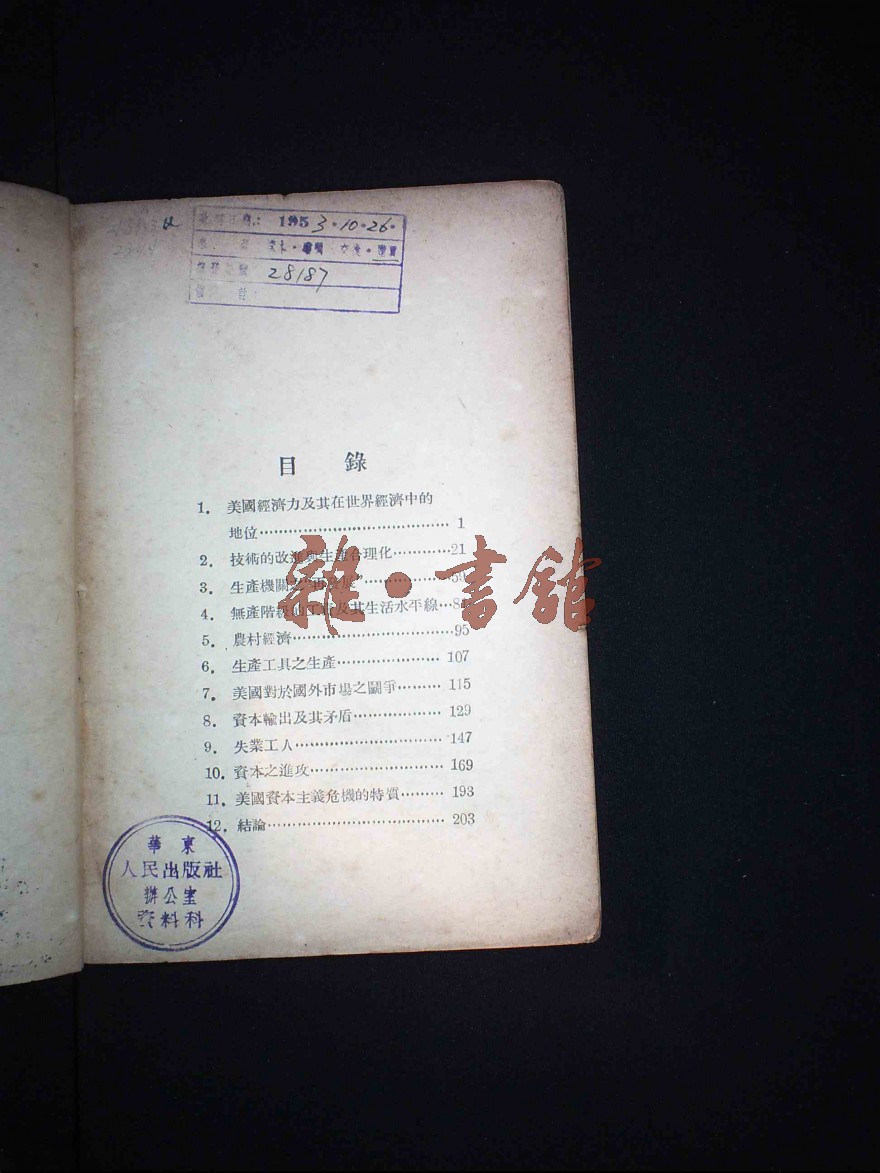 1953·10·26·
28187
目 錄
1. 美國經濟力及其在世界經濟中的
地位…………………………………1
2. 技術的改進與生產合理化…………21
3. 生產機關之"再發展"……………
4. 無產階級的工資及其生活水平線…
5. 農村經濟……………………………95
6. 生產工具之生產…………………107
7. 美國對於國外市場之鬪爭………115
8. 資本輸出及其矛盾………………129
9. 失業工人…………………………147
10. 資本之進攻………………………169
11. 美國資本主義危機的特質………193
12. 結論………………………………203
雜·書館
華東
人民出版社
辦公室
資料科